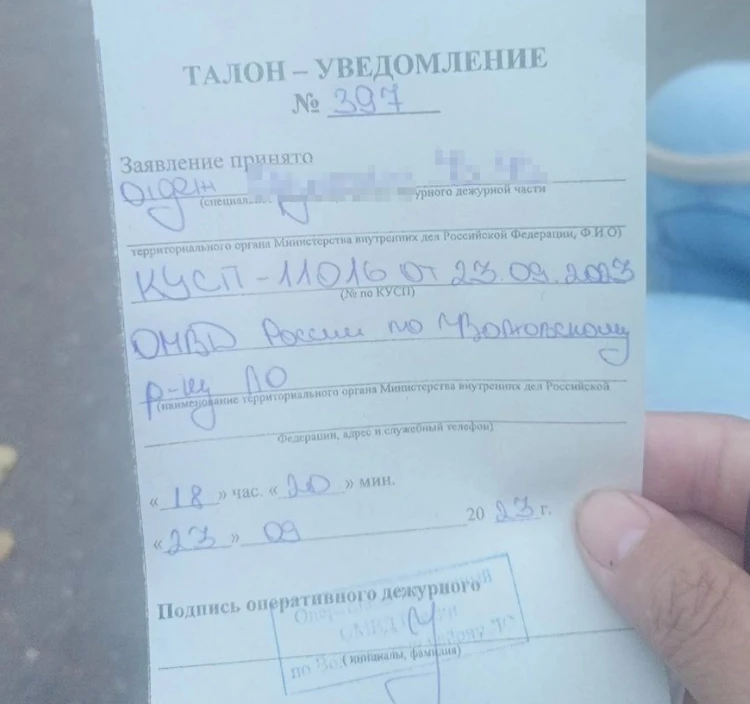 ТАЛОН – УВЕДОМЛЕНИЕ
№ 397
Заявление принято
(специал урного дежурной части
территориального органа Министерства внутренних дел Российской Федерации, Ф И О)
КУСП – 11016 от 23.09.2023
(№ по КУСП)
ОМВД России по Волховскому
р-ну ЛО
(наименование территориального органа Министерства внутренних дел Российской
Федерации, адрес и служебный телефон)
« 18 » час. « 20 » мин.
« 23 » 09 20 23 г.
Подпись оперативного дежурного
ОМВД
по
(инициалы, фамилия)